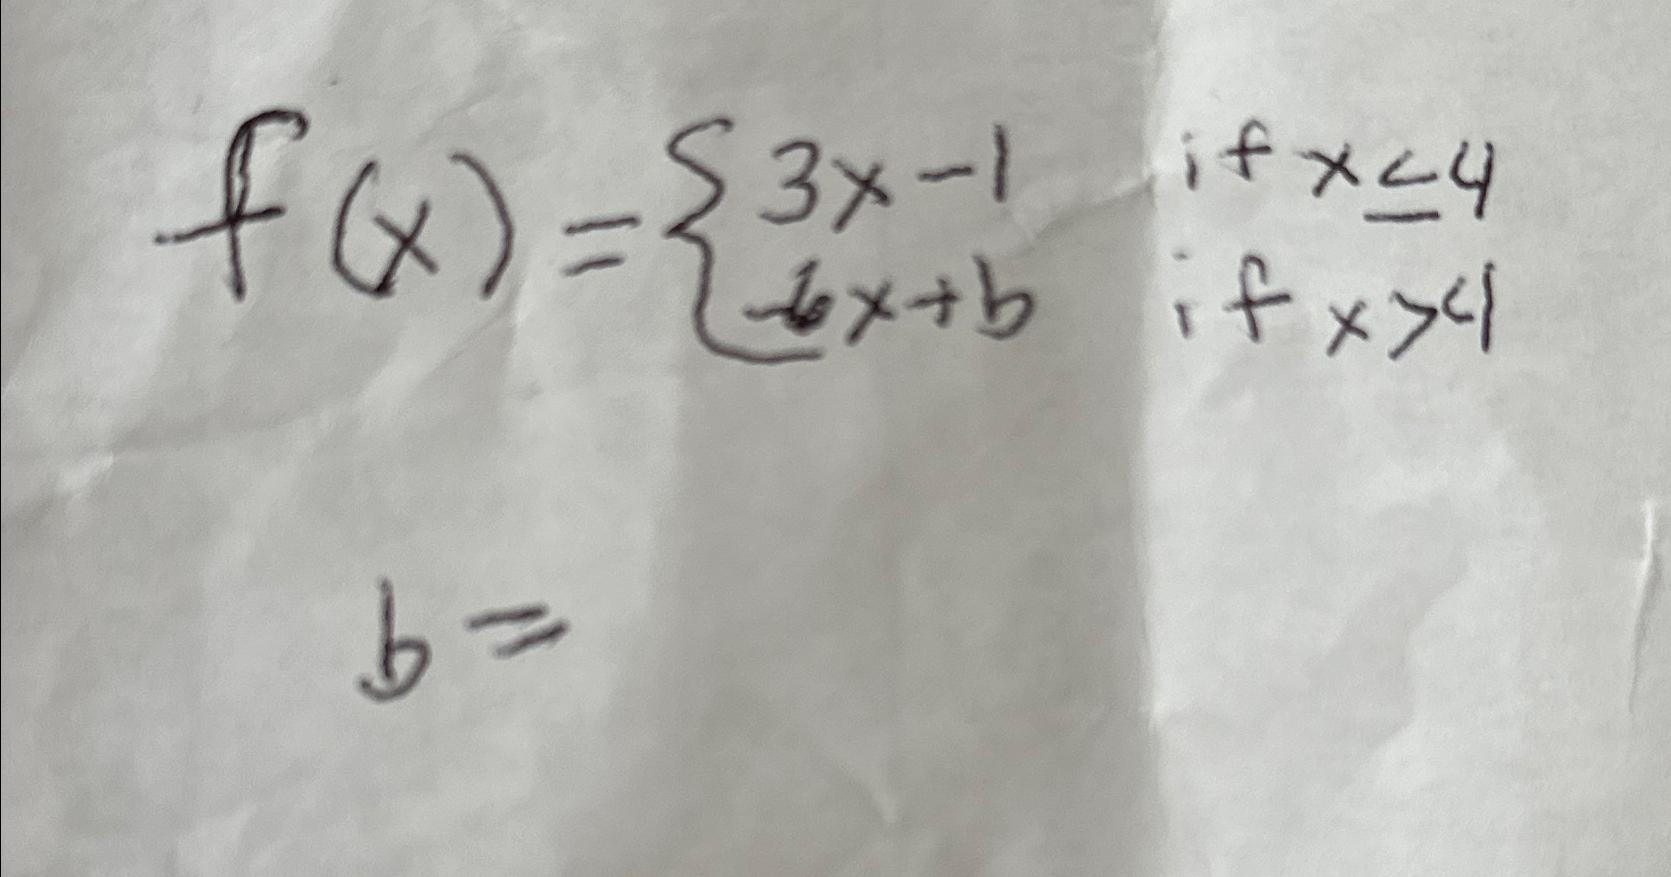 f(x) = { 3x - 1 if x ≤ 4
-6x + b if x > 4
b =